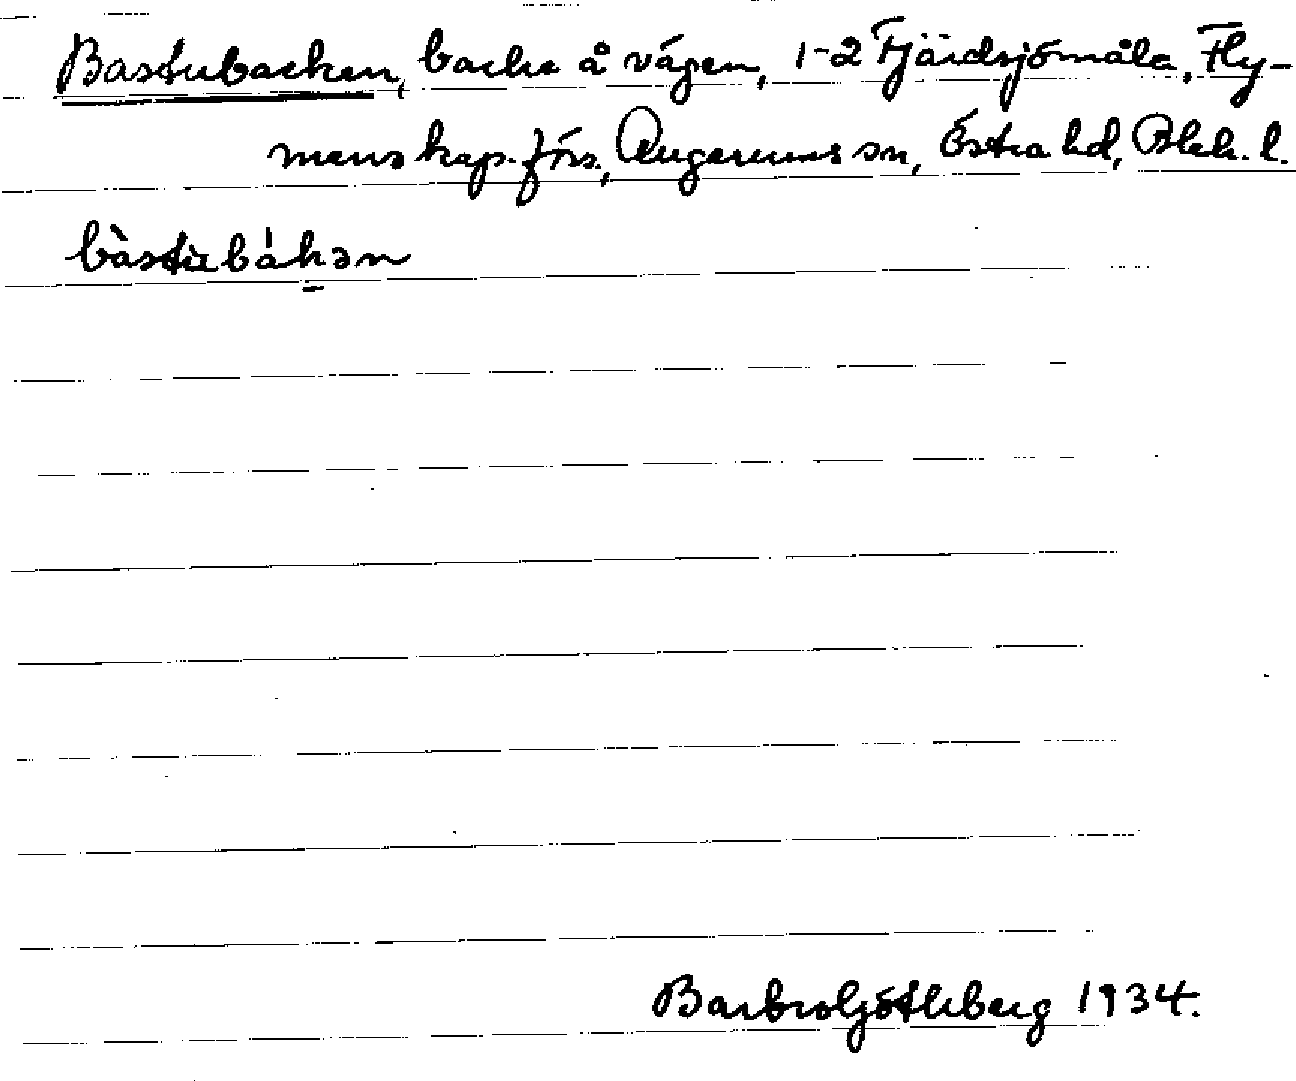 Bastubacken, backe å vägen, 1-2 Fjärdsjömåla, Fly-
mens kap. förs., Augerums sn, Östra hd, Blek. l.
bàstùbákən
Barbro Götlberg 1934.